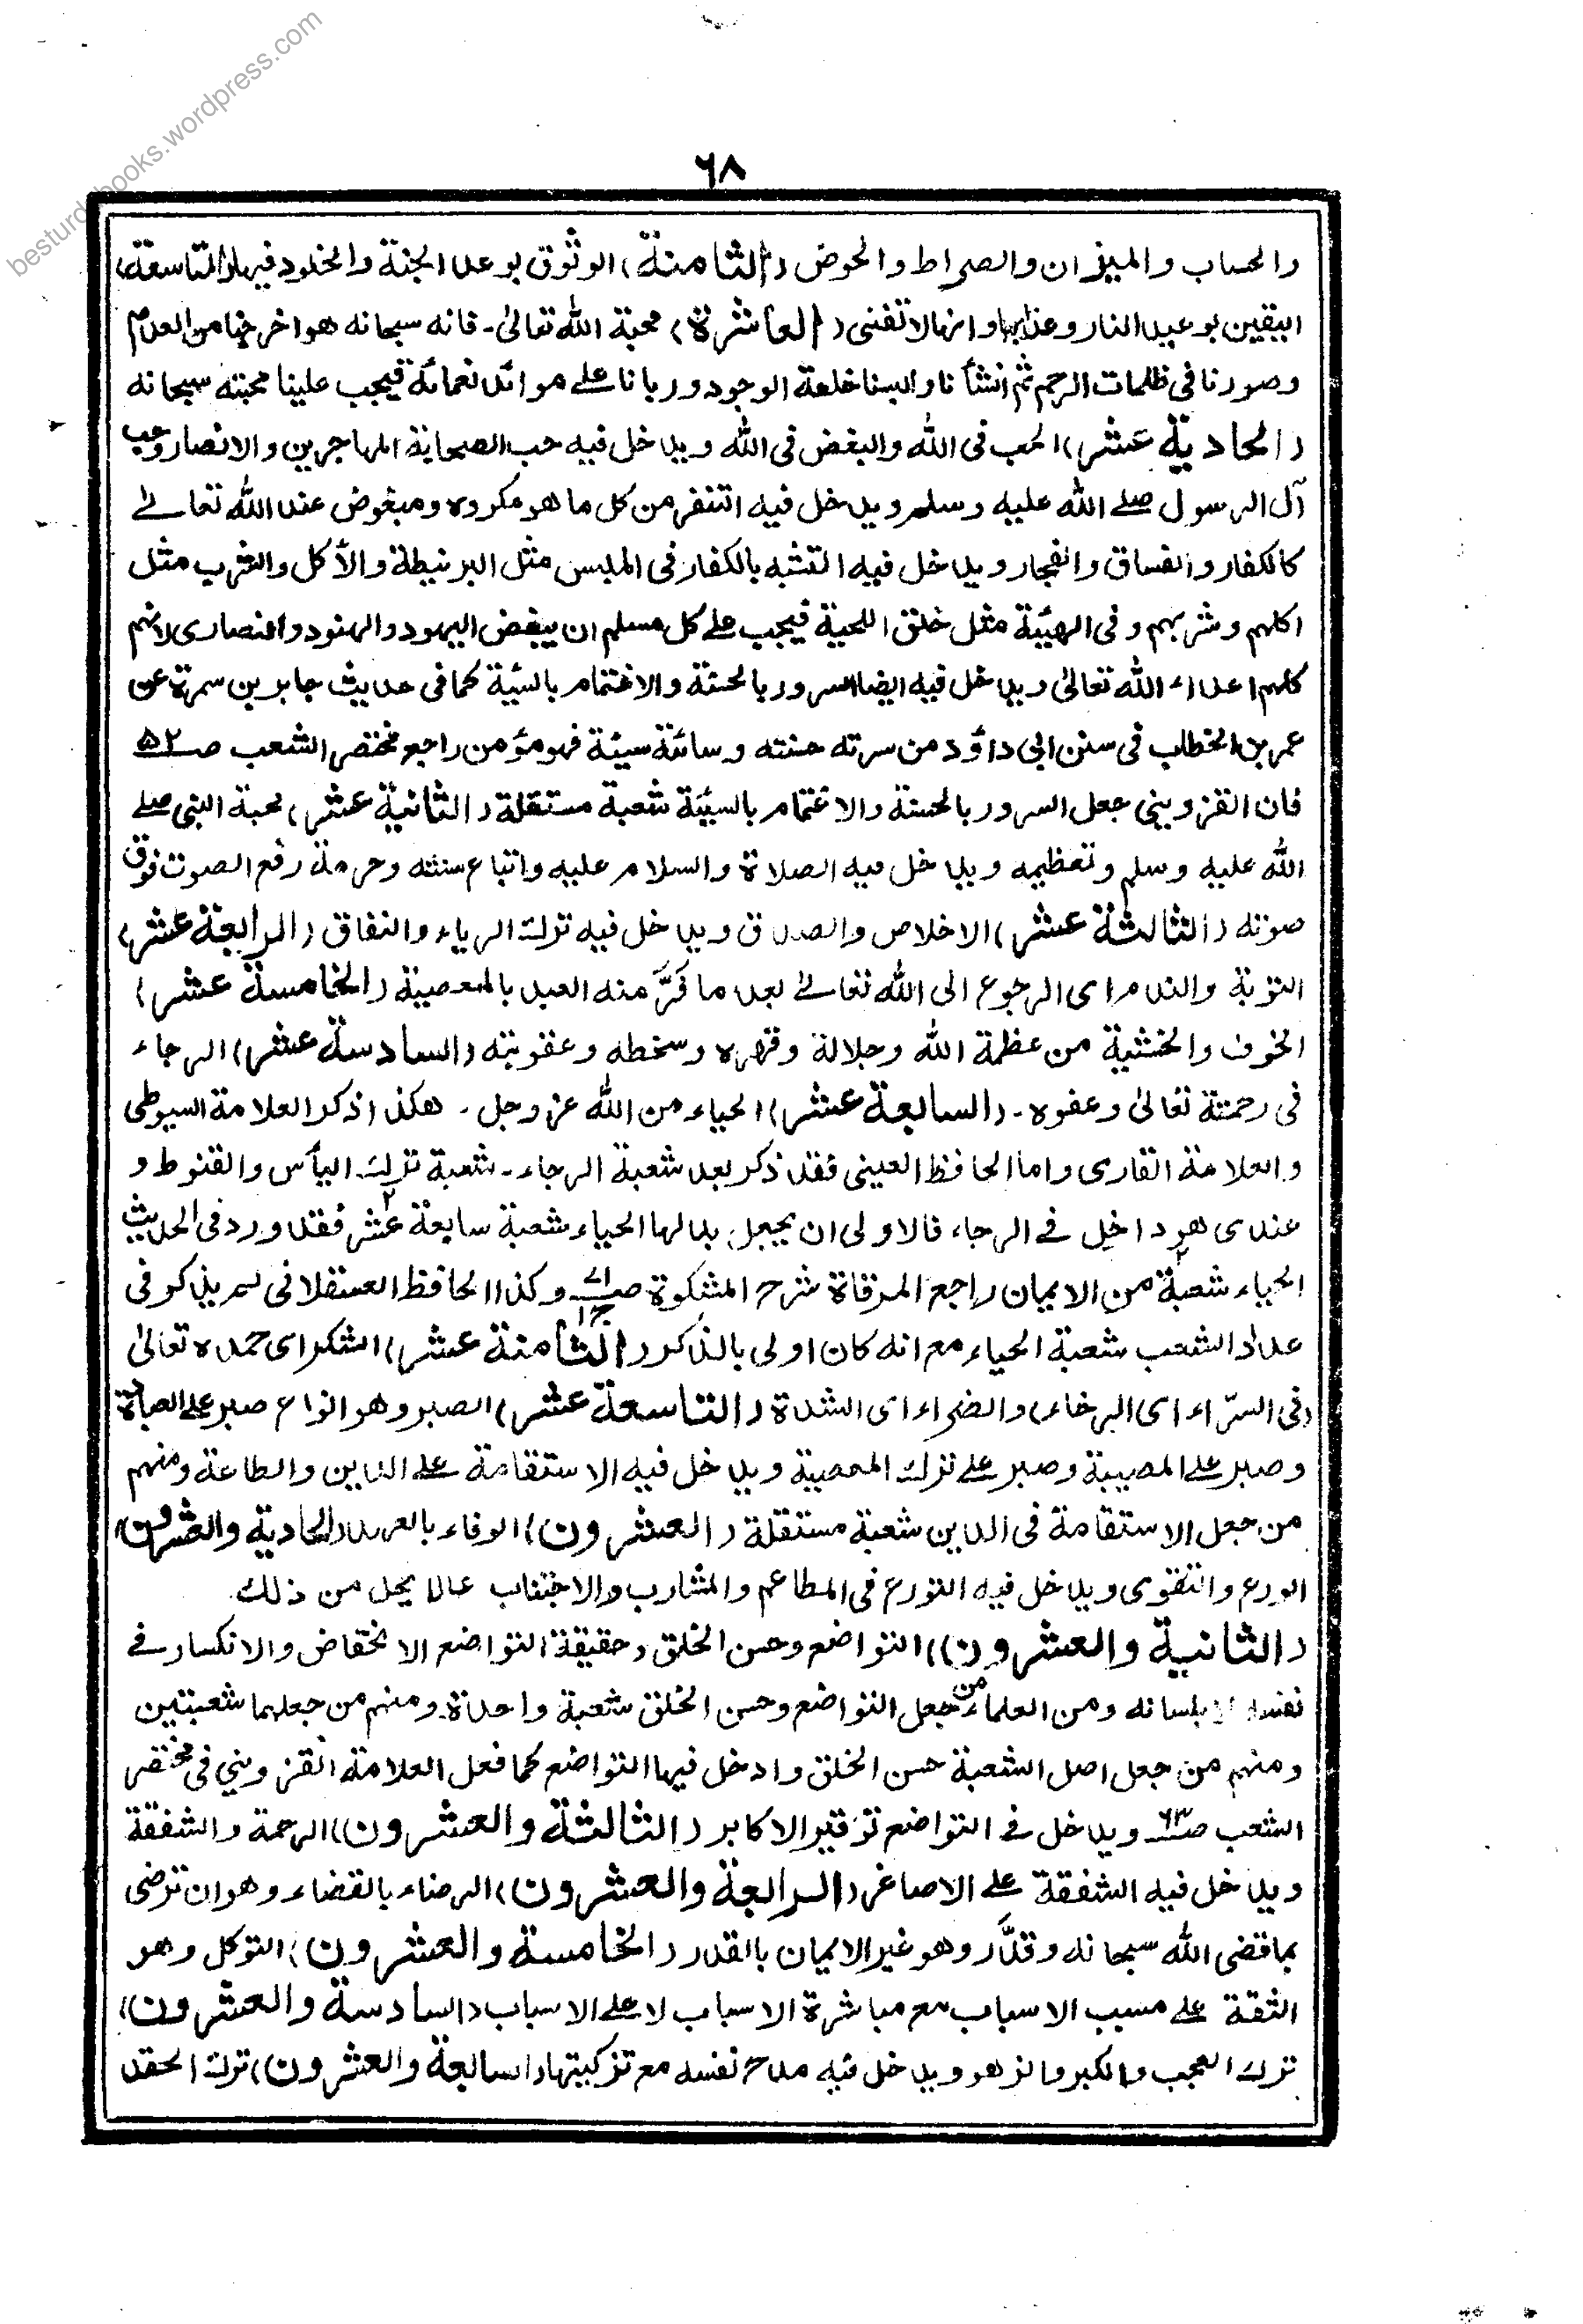 besturdubooks.wordpress.com
٦٨
والحساب والميزان والصراط والحوض (الثامنة) الوثوق بوعد الجنة والخلود فيها (التاسعة)
اليقين بوعيد النار وعذابها وانها لا تفنى (العاشرة) محبة الله تعالىٰ۔ فانه سبحانه هو اخرجنا من العدم
وصورنا فى ظلمات الرحم ثم انشأنا والبسنا خلعة الوجود وربانا على موائد نعمائه فيجب علينا محبته سبحانه
(الحادية عشر) الحب فى الله والبغض فى الله ويدخل فيه حب الصحابة المهاجرين والانصار وحب
آل الرسول صلے الله عليه وسلم ويدخل فيه التنفر من كل ما هو مكروه ومبغوض عند الله تعالےٰ
كالكفار والفساق والفجار ويدخل فيه التشبه بالكفار فى الملبس مثل البرنيطة والأكل والشرب مثل
اكلهم وشربهم وفى الهيئة مثل خلق اللحية فيجب علے كل مسلم ان يبغض اليهود والهنود والنصارى لانهم
كلهم اعداء الله تعالىٰ ويدخل فيه ايضا السرور بالحسنة والاغتمام بالسيئة كما فى حديث جابر بن سمرة عن
عمر بن الخطاب فى سنن ابى داؤد من سرته حسنته وسائته سيئة فهو مؤمن راجع مختصر الشعب صـ٥٢
فان القزوينى جعل السرور بالحسنة والاغتمام بالسيئة شعبة مستقلة (الثانية عشر) محبة النبى صلے
الله عليه وسلم وتعظيمه ويدخل فيه الصلاة والسلام عليه واتباع سنته وحرمة رفع الصوت فوق
صوته (الثالثة عشر) الاخلاص والصدق ويدخل فيه ترك الرياء والنفاق (الرابعة عشر)
التوبة والندم اى الرجوع الى الله تعالےٰ بعد ما فَرَّ منه العبد بالمعصية (الخامسة عشر)
الخوف والخشية من عظمة الله وجلاله وقهره وسخطه وعقوبته (السادسة عشر) الرجاء
فى رحمته تعالىٰ وعفوه۔ (السابعة عشر) الحياء من الله عز وجل۔ هكذا ذكر العلامة السيوطى
والعلامة القارى واما الحافظ العينى فقد ذكر بعد شعبة الرجاء۔ شعبة ترك اليأس والقنوط و
عندى هو داخل فے الرجاء فالاولى ان يجعل بدلها الحياء شعبة سابعة عشر فقد ورد فى الحديث
الحياء شعبة من الايمان راجع المرقاة شرح المشكوة صـ ج١ وكذا الحافظ العسقلانى لم يذكر فى
عداد الشعب شعبة الحياء مع انه كان اولى بالذكر (الثامنة عشر) الشكر اى حمده تعالىٰ
(فى السرّاء اى الرخاء) والضراء اى الشدة (التاسعة عشر) الصبر وهو انواع صبر على العبادة
وصبر علے المصيبة وصبر علے ترك المعصية ويدخل فيه الاستقامة علے الدين والطاعة ومنهم
من جعل الاستقامة فى الدين شعبة مستقلة (العشرون) الوفاء بالعهد (الحادية والعشرون)
الورع والتقوى ويدخل فيه التورع فى المطاعم والمشارب والاجتناب عما لا يحل من ذلك
(الثانية والعشرون)) التواضع وحسن الخلق وحقيقة التواضع الانخفاض والانكسار فے
نفسه لا بلسانه ومن العلماء من جعل التواضع وحسن الخلق شعبة واحدة ومنهم من جعلهما شعبتين
ومنهم من جعل اصل الشعبة حسن الخلق وادخل فيها التواضع كما فعل العلامة القزوينى فى مختصر
الشعب صـ٦٣ ويدخل فے التواضع توقير الاكابر (الثالثة والعشرون)) الرحمة والشفقة
ويدخل فيه الشفقة علے الاصاغر (الرابعة والعشرون) الرضاء بالقضاء وهو ان ترضى
بما قضى الله سبحانه وقدَّر وهو غير الايمان بالقدر (الخامسة والعشرون) التوكل وهو
الثقة علے مسبب الاسباب مع مباشرة الاسباب لا علے الاسباب (السادسة والعشرون)
ترك العجب والكبر والزهو ويدخل فيه مدح نفسه مع تزكيتها (السابعة والعشرون) ترك الحقد